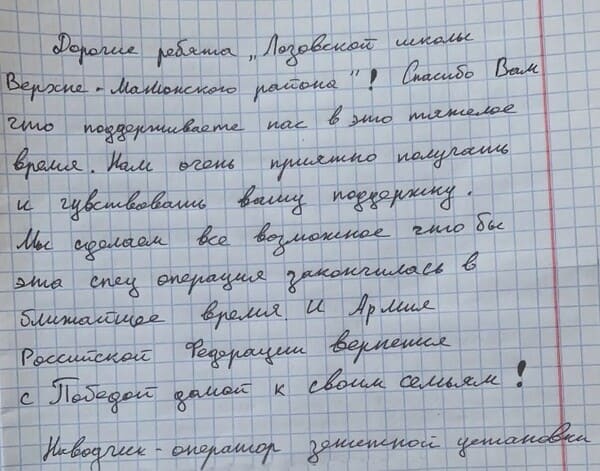 Дорогие ребята „Лозовской школы
Верхне-Мамонского района"! Спасибо Вам
что поддерживаете нас в это тяжелое
время. Нам очень приятно получать
и чувствовать вашу поддержку.
Мы сделаем все возможное что бы
эта спец операция закончилась в
ближайшее время. И Армия
Российской Федерации вернется
с Победой домой к своим семьям!
Наводчик-оператор зенитной установки